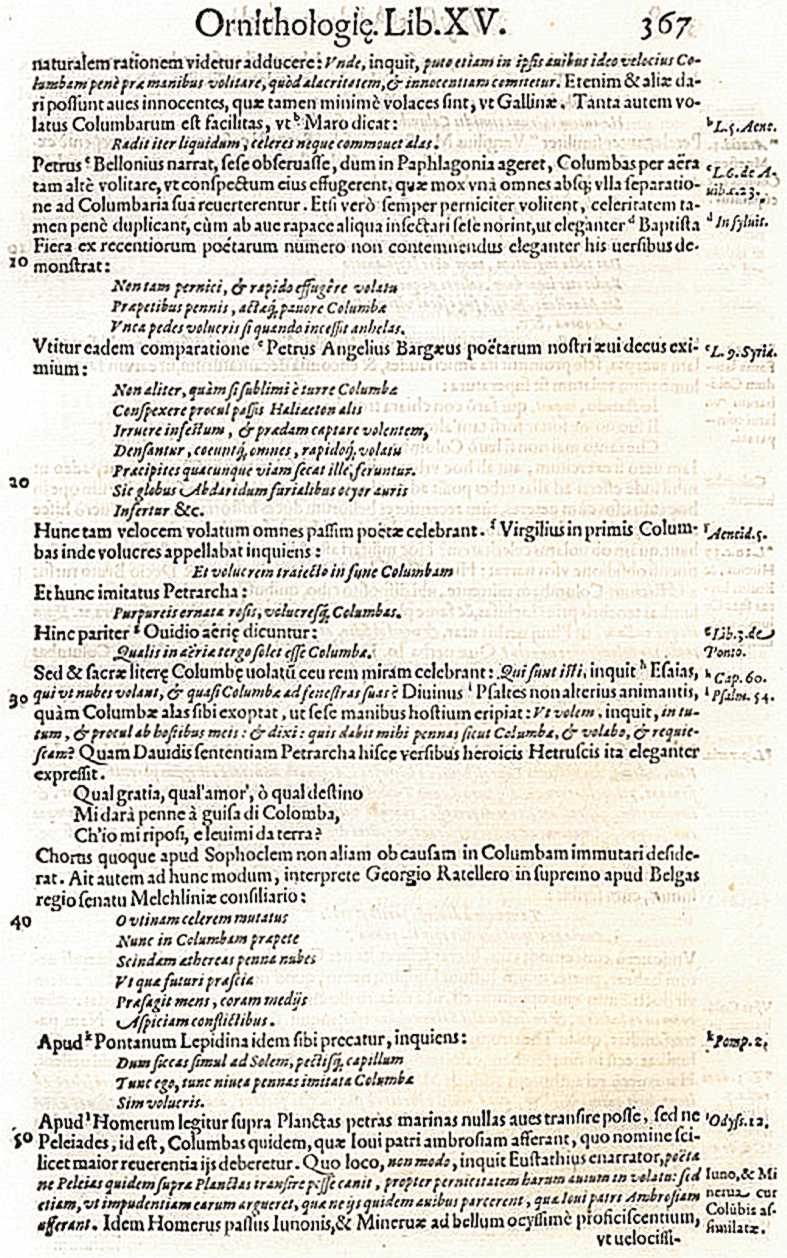 Ornithologię. Lib. XV. 367
naturalem rationem videtur adducere: Vnde, inquit, puto etiam in ipsis auibus ideo velocius Co-
lumbam penè præ manibus volitare, quòd alacritatem, & innocentiam comitetur. Etenim & aliæ da-
ri possunt aues innocentes, quæ tamen minimè volaces sint, vt Gallinæ. Tanta autem vo-
latus Columbarum est facilitas, vt h Maro dicat:
h L. 5. Aene.
Radit iter liquidum, celeres neque commouet alas.
Petrus c Bellonius narrat, sese obseruasse, dum in Paphlagonia ageret, Columbas per aëra
c L. 6. de A-
tam altè volitare, vt conspectum eius effugerent, quæ mox vnà omnes absq; vlla separatio-
uib. c. 23.
ne ad Columbaria sua reuerterentur. Etsi verò semper perniciter volitent, celeritatem ta-
men penè duplicant, cùm ab aue rapace aliqua insectari sese norint, ut eleganter d Baptista
d In syluis.
Fiera ex recentiorum poëtarum numero non contemnendus eleganter his uersibus de-
10 monstrat:
Non tam pernici, & rapido effugêre volatu
Præpetibus pennis, actæq; pauore Columbæ
Vncæ pedes volucris si quando incessit anhelas.
Vtitur eadem comparatione e Petrus Angelius Bargæus poëtarum nostri æui decus exi-
e L. 9. Syria.
mium:
Non aliter, quàm si sublimi è turre Columbæ
Conspexere procul passis Haliaeton alis
Irruere infestum, & prædam captare volentem,
Densantur, coeuntq; omnes, rapidoq; volatu
Præcipites quacunque viam secat ille, feruntur.
20
Sic globus Abdaridum furialibus ocyor auris
Infertur &c.
Hunc tam velocem volatum omnes passim poëtæ celebrant. f Virgilius in primis Colum-
f Aeneid. 5.
bas inde volucres appellabat inquiens:
Et volucrem traiecto in fune Columbam
Et hunc imitatus Petrarcha:
Purpureis ornata rosis, volucresq; Columbas.
Hinc pariter g Ouidio aërię dicuntur:
g Lib. 3. de
Qualis in aëria tergo solet esse Columba.
Ponto.
Sed & sacræ literę Columbę uolatũ ceu rem miram celebrant: Qui sunt isti, inquit h Esaias,
h Cap. 60.
qui vt nubes volant, & quasi Columbæ ad fenestras suas? Diuinus i Psaltes non alterius animantis,
i Psalm. 54.
30
quàm Columbæ alas sibi exoptat, ut sese manibus hostium eripiat: Vt volem, inquit, in tu-
tum, & procul ab hostibus meis: & dixi: quis dabit mihi pennas sicut Columbæ, & volabo, & requie-
scam? Quam Dauidis sententiam Petrarcha hisce versibus heroicis Hetruscis ita eleganter
expressit.
Qual gratia, qual'amor', ò qual destino
Mi darà penne à guisa di Colomba,
Ch'io mi riposi, e leuimi da terra?
Chorus quoque apud Sophoclem non aliam ob causam in Columbam immutari deside-
rat. Ait autem ad hunc modum, interprete Georgio Ratellero in supremo apud Belgas
regio senatu Melchliniæ consiliario:
40
O vtinam celerem mutatus
Nunc in Columbam præpete
Scindam æthereas penna nubes
Vt quæ futuri præscia
Præsagit mens, coram medijs
Aspiciam conflictibus.
Apud k Pontanum Lepidina idem sibi precatur, inquiens:
k Pomp. 2.
Dum siccas simul ad Solem, pectisq; capillum
Tunc ego, tunc niueæ pennas imitata Columbæ
Sim volucris.
Apud l Homerum legitur supra Planctas petras marinas nullas aues transire posse, sed ne
l Odyss. 12.
50 Peleiades, id est, Columbas quidem, quæ Ioui patri ambrosiam afferant, quo nomine sci-
licet maior reuerentia ijs deberetur. Quo loco, non modo, inquit Eustathius enarrator, poëta
ne Peleias quidem supra Planctas transire posse canit, propter pernicitatem harum auium in volatu: sed
etiam, vt impudentiam earum argueret, quæ ne ijs quidem auibus parcerent, quæ Ioui patri Ambrosiam
afferant. Idem Homerus passus Iunonis, & Mineruæ ad bellum ocyssimè proficiscentium,
Iuno, & Mi
nerua cur
Colũbis as-
similatæ.
vt uelocissi-